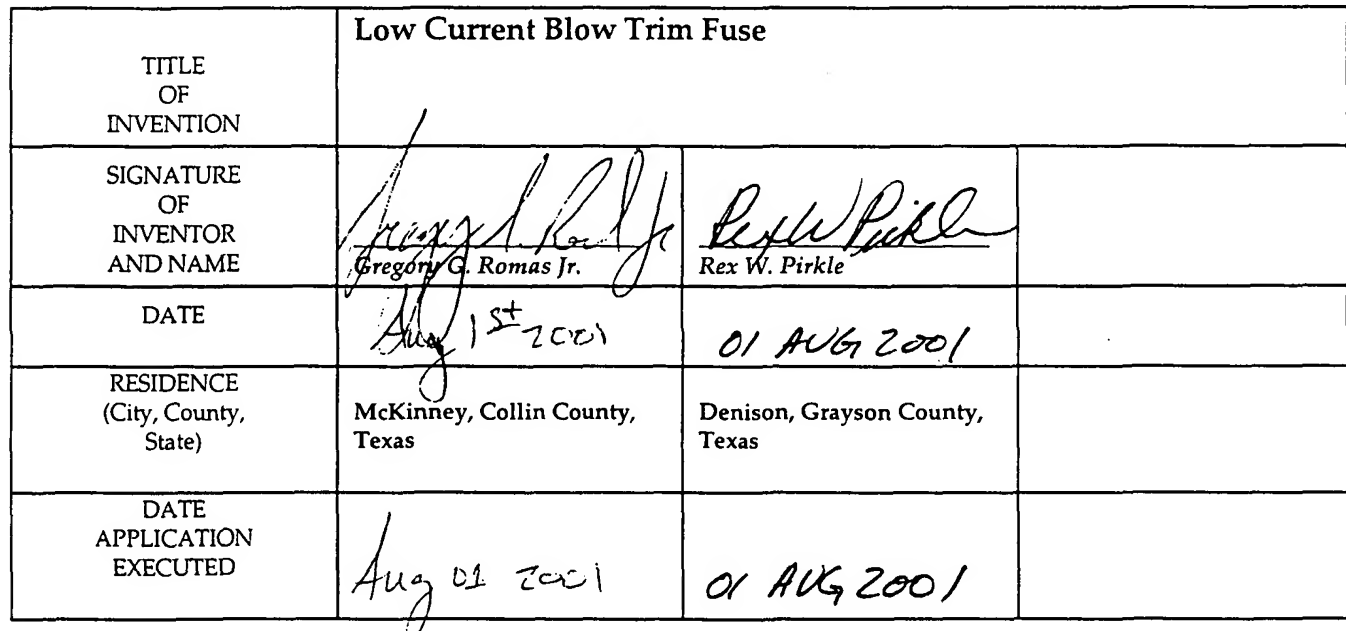 Low Current Blow Trim Fuse
TITLE
OF
INVENTION
SIGNATURE
OF
INVENTOR
AND NAME
Gregory G. Romas Jr.
Rex W Pirkle
Rex W. Pirkle
DATE
Aug 1st 2001
01 AUG 2001
RESIDENCE
(City, County,
State)
McKinney, Collin County,
Texas
Denison, Grayson County,
Texas
DATE
APPLICATION
EXECUTED
Aug 01 2001
01 AUG 2001